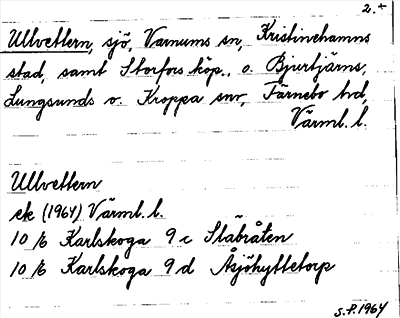 2.+
Ullvettern, sjö, Varnums sn, Kristinehamns
stad, samt Storfors köp., o. Bjurtjärns,
Lungsunds o. Kroppa snr, Färnebo hd,
Värml. l.
Ullvettern
ek (1964) Värml. l.
10 /6 Karlskoga 9 c Släbråten
10 /6 Karlskoga 9 d Åsjöhyttetorp
S.P. 1964